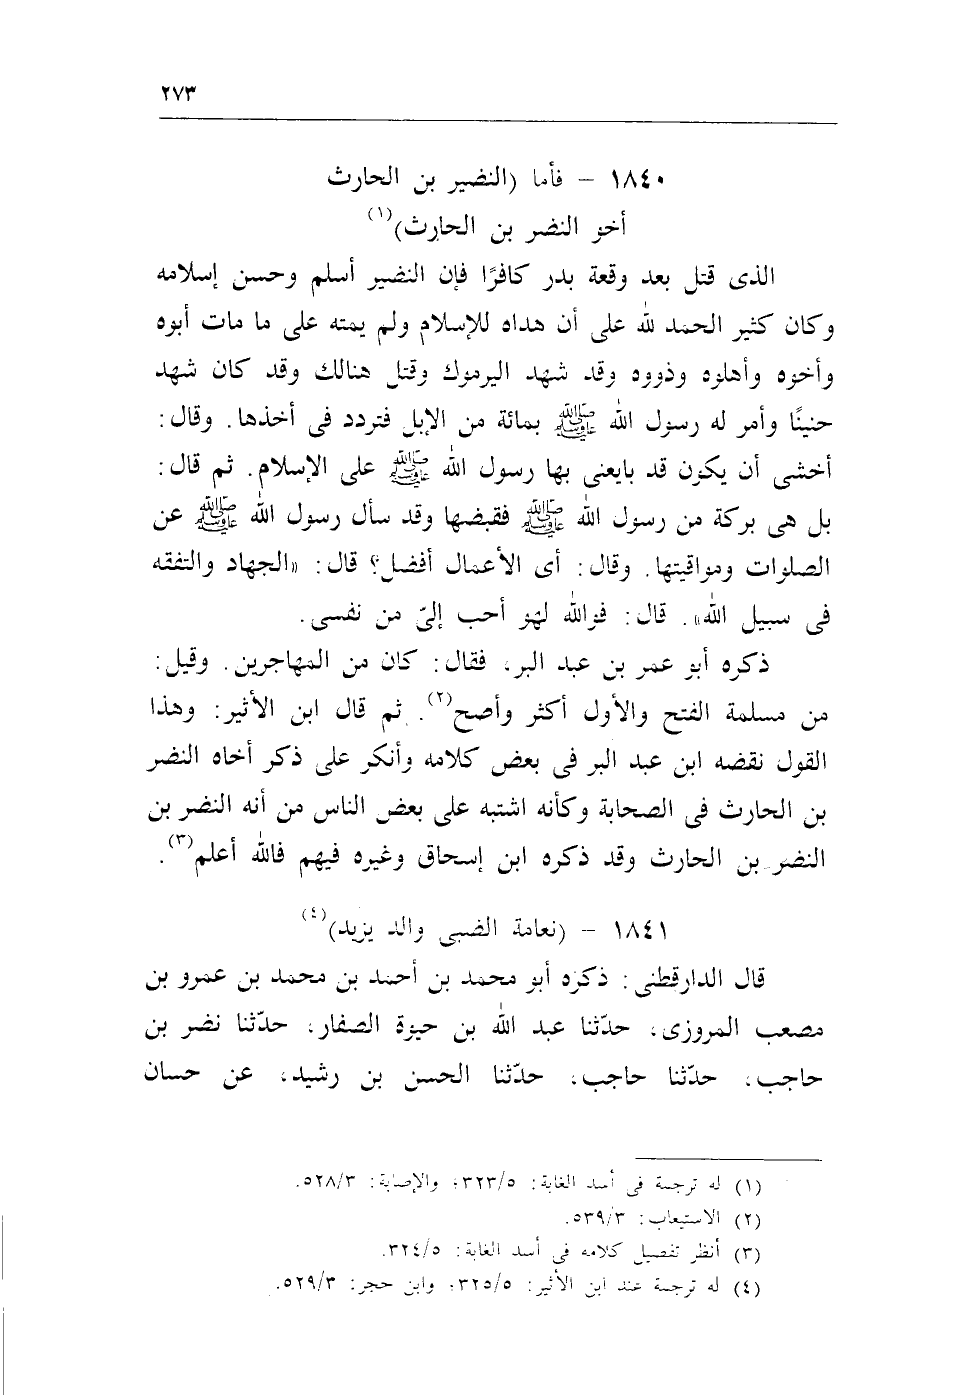 ٢٧٣
١٨٤٠ – فأما (النضير بن الحارث
أخو النضر بن الحارث)(١)
الذى قتل بعد وقعة بدر كافرًا فإن النضير أسلم وحسن إسلامه
وكان كثير الحمد لله على أن هداه للإسلام ولم يمته على ما مات أبوه
وأخوه وأهلوه وذووه وقد شهد اليرموك وقتل هنالك وقد كان شهد
حنينًا وأمر له رسول الله ﷺ بمائة من الإبل فتردد فى أخذها. وقال:
أخشى أن يكون قد بايعنى بها رسول الله ﷺ على الإسلام. ثم قال:
بل هى بركة من رسول الله ﷺ فقبضها وقد سأل رسول الله ﷺ عن
الصلوات ومواقيتها. وقال: أى الأعمال أفضل؟ قال: «الجهاد والتفقه
فى سبيل الله». قال: فوالله لهو أحب إلىّ من نفسى.
ذكره أبو عمر بن عبد البر، فقال: كان من المهاجرين. وقيل:
من مسلمة الفتح والأول أكثر وأصح(٢). ثم قال ابن الأثير: وهذا
القول نقضه ابن عبد البر فى بعض كلامه وأنكر على ذكر أخاه النضر
بن الحارث فى الصحابة وكأنه اشتبه على بعض الناس من أنه النضر بن
النضر بن الحارث وقد ذكره ابن إسحاق وغيره فيهم فالله أعلم(٣).
١٨٤١ – (نعامة الضبى والد يزيد)(٤)
قال الدارقطنى: ذكره أبو محمد بن أحمد بن محمد بن عمرو بن
مصعب المروزى، حدّثنا عبد الله بن حيوة الصفار، حدّثنا نضر بن
حاجب، حدّثنا حاجب، حدّثنا الحسن بن رشيد، عن حسان
(١) له ترجمة فى أسد الغابة: ٣٢٣/٥؛ والإصابة: ٥٢٨/٣.
(٢) الاستيعاب: ٥٣٩/٣.
(٣) أنظر تفصيل كلامه فى أسد الغابة: ٣٢٤/٥.
(٤) له ترجمة عند ابن الأثير: ٣٢٥/٥؛ وابن حجر: ٥٢٩/٣.